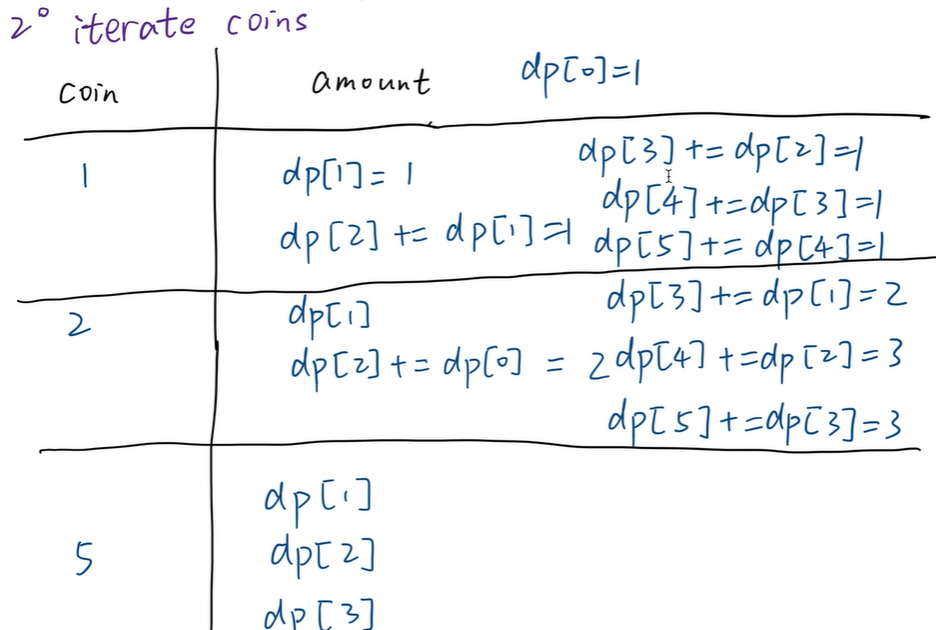 2° iterate coins
coin
amount
dp[0]=1
1
dp[1]= 1
dp[2] += dp[1]=1
dp[3] += dp[2]=1
dp[4]+=dp[3]=1
dp[5]+= dp[4]=1
2
dp[1]
dp[2]+= dp[0] = 2
dp[3]+= dp[1]=2
dp[4] +=dp[2]=3
dp[5]+=dp[3]=3
5
dp[1]
dp[2]
dp[3]